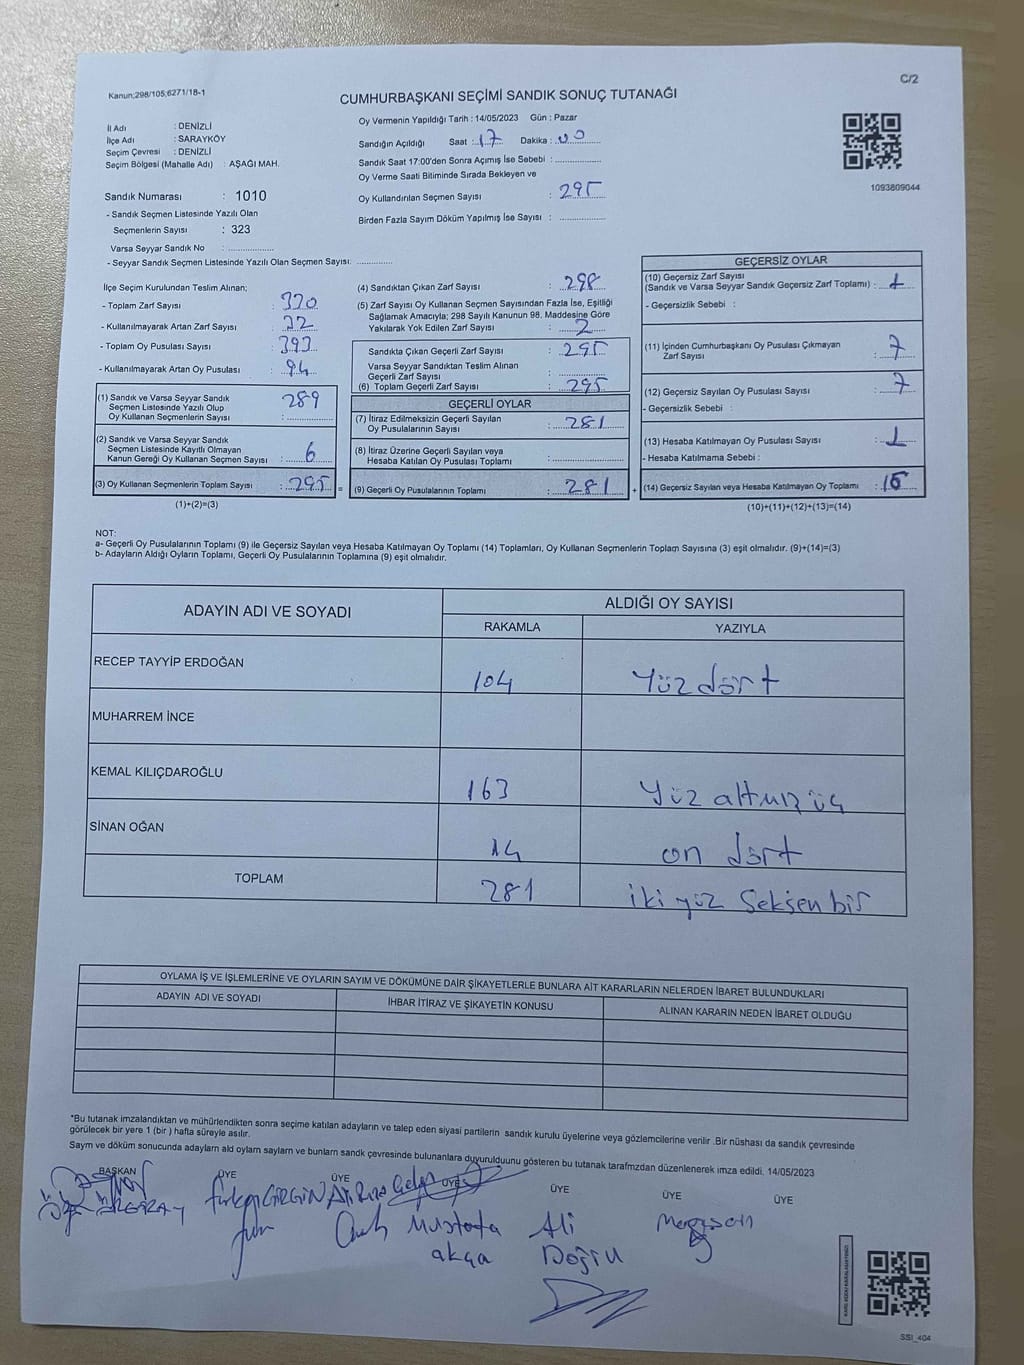 C/2
Kanun;298/105;6271/18-1
CUMHURBAŞKANI SEÇİMİ SANDIK SONUÇ TUTANAĞI
İl Adı : DENİZLİ
İlçe Adı : SARAYKÖY
Seçim Çevresi : DENİZLİ
Seçim Bölgesi (Mahalle Adı) : AŞAĞI MAH.
Oy Vermenin Yapıldığı Tarih : 14/05/2023 Gün : Pazar
Sandığın Açıldığı Saat : 17 Dakika : 00
Sandık Saat 17:00'den Sonra Açımış İse Sebebi :
Oy Verme Saati Bitiminde Sırada Bekleyen ve
Oy Kullandırılan Seçmen Sayısı : 295
Birden Fazla Sayım Döküm Yapılmış İse Sayısı :
1093809044
Sandık Numarası : 1010
- Sandık Seçmen Listesinde Yazılı Olan
Seçmenlerin Sayısı : 323
Varsa Seyyar Sandık No :
- Seyyar Sandık Seçmen Listesinde Yazılı Olan Seçmen Sayısı:
İlçe Seçim Kurulundan Teslim Alınan;
- Toplam Zarf Sayısı : 370
- Kullanılmayarak Artan Zarf Sayısı : 72
- Toplam Oy Pusulası Sayısı : 393
- Kullanılmayarak Artan Oy Pusulası : 94
(1) Sandık ve Varsa Seyyar Sandık
Seçmen Listesinde Yazılı Olup
Oy Kullanan Seçmenlerin Sayısı : 289
(2) Sandık ve Varsa Seyyar Sandık
Seçmen Listesinde Kayıtlı Olmayan
Kanun Gereği Oy Kullanan Seçmen Sayısı : 6
(3) Oy Kullanan Seçmenlerin Toplam Sayısı : 295
(1)+(2)=(3)
(4) Sandıktan Çıkan Zarf Sayısı : 298
(5) Zarf Sayısı Oy Kullanan Seçmen Sayısından Fazla İse, Eşitliği
Sağlamak Amacıyla; 298 Sayılı Kanunun 98. Maddesine Göre
Yakılarak Yok Edilen Zarf Sayısı : 2
Sandıkta Çıkan Geçerli Zarf Sayısı : 295
Varsa Seyyar Sandıktan Teslim Alınan
Geçerli Zarf Sayısı :
(6) Toplam Geçerli Zarf Sayısı : 295
GEÇERLİ OYLAR
(7) İtiraz Edilmeksizin Geçerli Sayılan
Oy Pusulalarının Sayısı : 281
(8) İtiraz Üzerine Geçerli Sayılan veya
Hesaba Katılan Oy Pusulası Toplamı :
= (9) Geçerli Oy Pusulalarının Toplamı : 281 +
GEÇERSİZ OYLAR
(10) Geçersiz Zarf Sayısı
(Sandık ve Varsa Seyyar Sandık Geçersiz Zarf Toplamı) : 1
- Geçersizlik Sebebi :
(11) İçinden Cumhurbaşkanı Oy Pusulası Çıkmayan
Zarf Sayısı : 7
(12) Geçersiz Sayılan Oy Pusulası Sayısı : 7
- Geçersizlik Sebebi :
(13) Hesaba Katılmayan Oy Pusulası Sayısı : 1
- Hesaba Katılmama Sebebi :
(14) Geçersiz Sayılan veya Hesaba Katılmayan Oy Toplamı : 16
(10)+(11)+(12)+(13)=(14)
NOT:
a- Geçerli Oy Pusulalarının Toplamı (9) ile Geçersiz Sayılan veya Hesaba Katılmayan Oy Toplamı (14) Toplamları, Oy Kullanan Seçmenlerin Toplam Sayısına (3) eşit olmalıdır. (9)+(14)=(3)
b- Adayların Aldığı Oyların Toplamı, Geçerli Oy Pusulalarının Toplamına (9) eşit olmalıdır.
ADAYIN ADI VE SOYADI ALDIĞI OY SAYISI
RAKAMLA YAZIYLA
RECEP TAYYİP ERDOĞAN 104 Yüz dört
MUHARREM İNCE
KEMAL KILIÇDAROĞLU 163 Yüz altmış üç
SİNAN OĞAN 14 on dört
TOPLAM 281 iki yüz Seksen bir
OYLAMA İŞ VE İŞLEMLERİNE VE OYLARIN SAYIM VE DÖKÜMÜNE DAİR ŞİKAYETLERLE BUNLARA AİT KARARLARIN NELERDEN İBARET BULUNDUKLARI
ADAYIN ADI VE SOYADI İHBAR İTİRAZ VE ŞİKAYETİN KONUSU ALINAN KARARIN NEDEN İBARET OLDUĞU
*Bu tutanak imzalandıktan ve mühürlendikten sonra seçime katılan adayların ve talep eden siyasi partilerin sandık kurulu üyelerine veya gözlemcilerine verilir .Bir nüshası da sandık çevresinde
görülecek bir yere 1 (bir ) hafta süreyle asılır.
Sayım ve döküm sonucunda adayların ald oyların sayların ve bunların sandk çevresinde bulunanlara duyurulduunu gösteren bu tutanak tarafmzdan düzenlenerek imza edildi. 14/05/2023
BAŞKAN ÜYE ÜYE ÜYE ÜYE ÜYE ÜYE
GİRGİN Ali Rıza
Mustafa Ali
akça Doğru
SSI_404